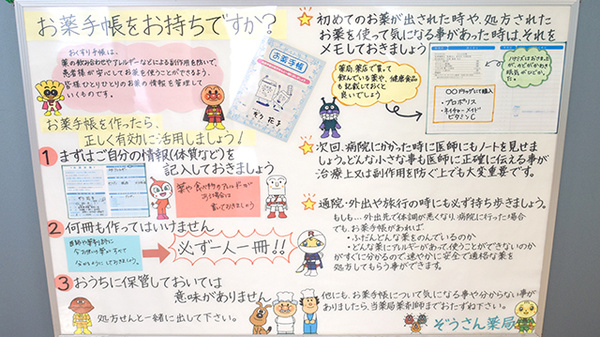 お薬手帳をお持ちですか?
おくすり手帳は、
薬の飲み合わせやアレルギーなどによる副作用を防いで、
患者様が安心してお薬を使うことができるよう、
皆様ひとりひとりのお薬の情報を管理して
いくものです。
お薬手帳を作ったら、
正しく有効に活用しましょう!
1 まずはご自分の情報(体質など)を
記入しておきましょう
薬や食べ物のアレルギーが
ある場合は
書いておきましょう
2 何冊も作ってはいけません
必ず一人一冊!!
3 おうちに保管しておいては
意味がありません
処方せんと一緒に出して下さい。
お薬手帳
初めてのお薬が出された時や、処方された
お薬を使って気になる事があった時は、それを
メモしておきましょう
薬局・薬店で買って
飲んでいる薬や、健康食品
も記載しておくと
良いでしょう
○○ドラッグにて購入
・プロポリス
・ネイチャーメイド
ビタミンC
次回、病院にかかった時に医師にもノートを見せま
しょう。どんな小さな事も医師に正確に伝える事が
治療上又は副作用を防ぐ上でも大変重要です。
通院・外出や旅行の時にも必ず持ち歩きましょう。
もしも…外出先で体調が悪くなり病院に行った場合
でも、お薬手帳があれば、
・ふだんどんな薬をのんでいるのか
・どんな薬にアレルギーがあって、使うことができないのか
がすぐに分かるので速やかに安全で適格な薬を
処方してもらう事ができます。
他にも、お薬手帳について気になる事や分からない事が
ありましたら、当薬局薬剤師までおたずね下さい。
ぞうさん薬局